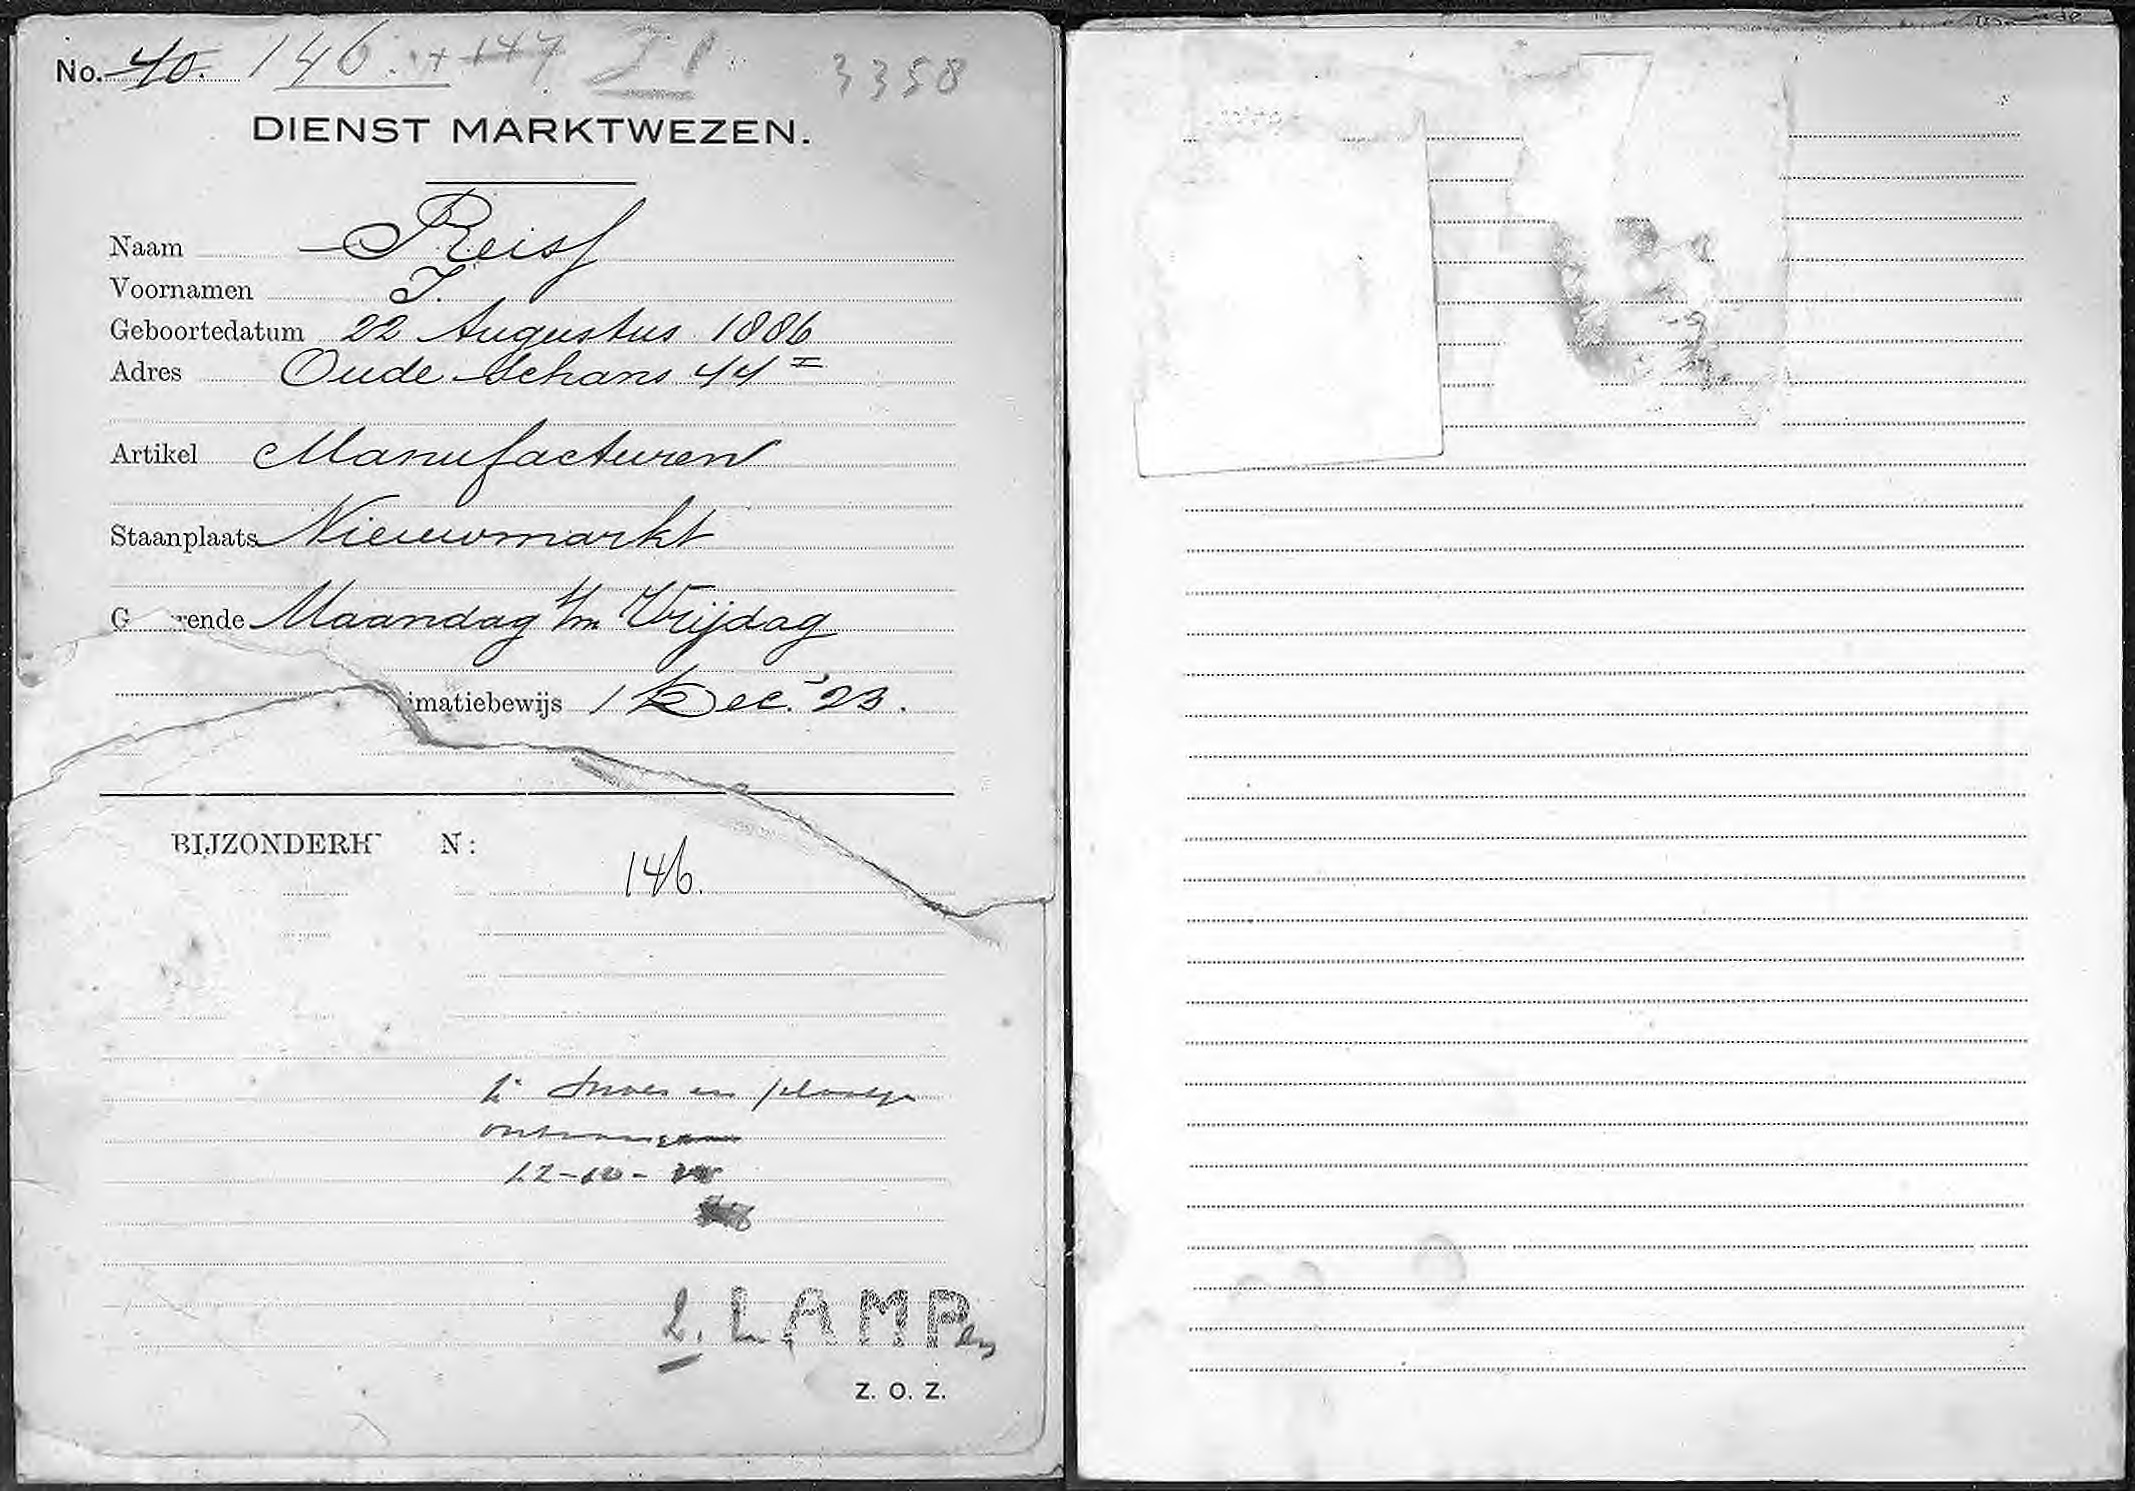 No. 40. 146. 147 3358
DIENST MARKTWEZEN.
Naam Reiss
Voornamen I.
Geboortedatum 22 Augustus 1886
Adres Oude Schans 44 I
Artikel Manufacturen
Staanplaats Nieuwmarkt
G rende Maandag t/m Vrijdag
imatiebewijs 1 Dec. '23.
BIJZONDERH N:
146.
en
12-10-
2. LAMPen
Z. O. Z.